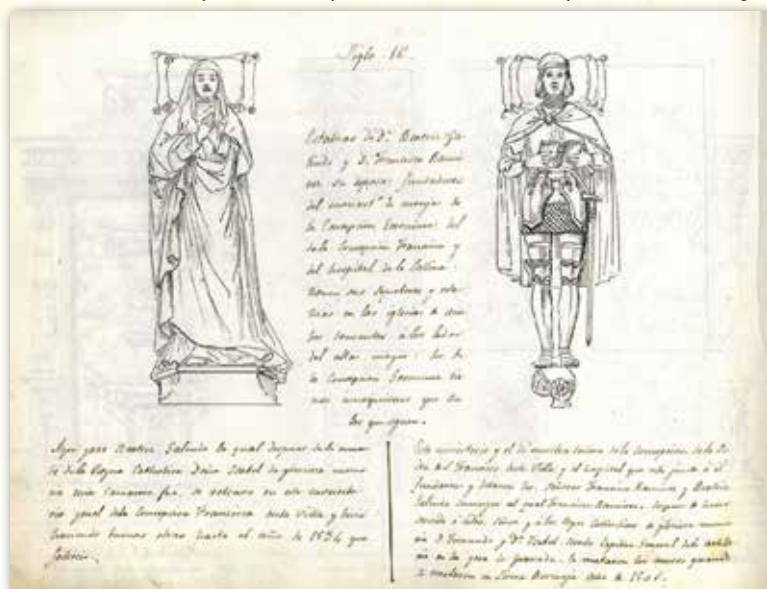 Siglo
Estatuas de Dª Beatriz Ga-
lindo y D. Francisco Rami-
rez su esposo: fundadores
del monastº de monjas de
la Concepcion Geronima, del
de la Concepcion Francisca y
del hospital de la Latina.
tienen sus sepulcros y esta-
tuas en las iglesias de am-
bos conventos a los lados
del altar mayor: los de
la Concepcion Geronima tie-
nen que
que siguen.
Aqui yaze Beatriz Galindo la qual despues de la muer-
te de la Reyna Catholica Doña Isabel de gloriosa memo-
ria cuia camarera fue, se retraxo en este
de la Concepcion Francisca de esta Villa y vivio
haciendo buenas obras hasta el año de 1534 que
fallecio.
Este monesterio y el de nuestra señora de la Concepcion de la Or-
den de S. Francisco de esta Villa y el hospital que esta junto a el
fundaron y los señores Francisco Ramirez y Beatriz
Galindo su muger el qual Francisco Ramirez, despues de haver
servido a Dios y a los Reyes Catholicos de gloriosa memo-
ria D. Fernando y Dª Isabel, siendo Capitan General de la artille-
ria en la de Granada, le mataron los moros quando
se en Sierra Bermeja año de 1501.